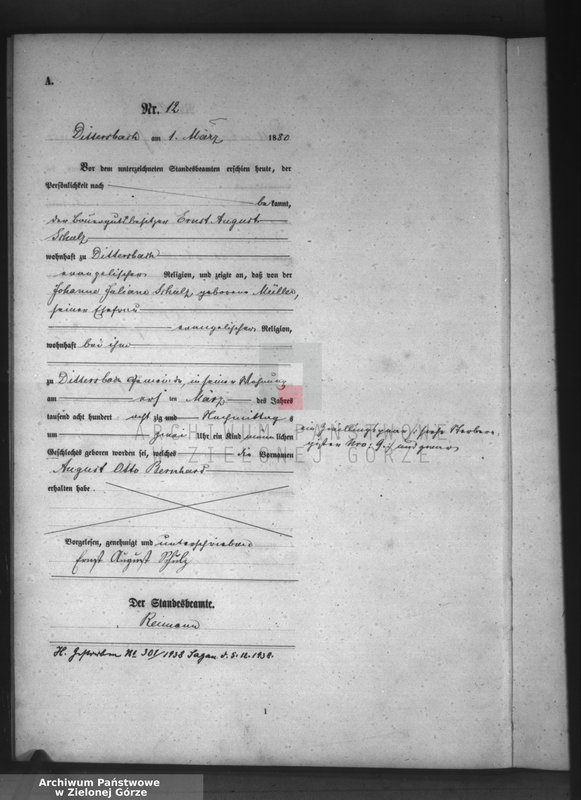 A.
Nr. 12
Dittersbach am 1. März 1880
Vor dem unterzeichneten Standesbeamten erschien heute, der
Persönlichkeit nach
bekannt,
der Bauergutsbesitzer Ernst August
Schulz
wohnhaft zu Dittersbach
evangelischer Religion, und zeigte an, daß von der
Johanne Juliane Schulz geborene Müller,
seiner Ehefrau
evangelischer Religion,
wohnhaft bei ihm
zu Dittersbach Gemeinde, in seiner Wohnung
am ersten März des Jahres
tausend acht hundert achtzig und Nachmittags
um Uhr ein Kind männlichen
Geschlechts geboren worden sei, welches die Vornamen
August Otto Bernhard
erhalten habe.
ein Zwillingspaar, siehe
Nro: 9. und
Vorgelesen, genehmigt und unterschrieben
Ernst August Schulz
Der Standesbeamte.
Reimann
H. Gestorben No 305/1938 Sagan d. 8.12.1938.
1
ARCHIWUM PAŃSTWOWE
W ZIELONEJ GÓRZE
Archiwum Państwowe
w Zielonej Górze